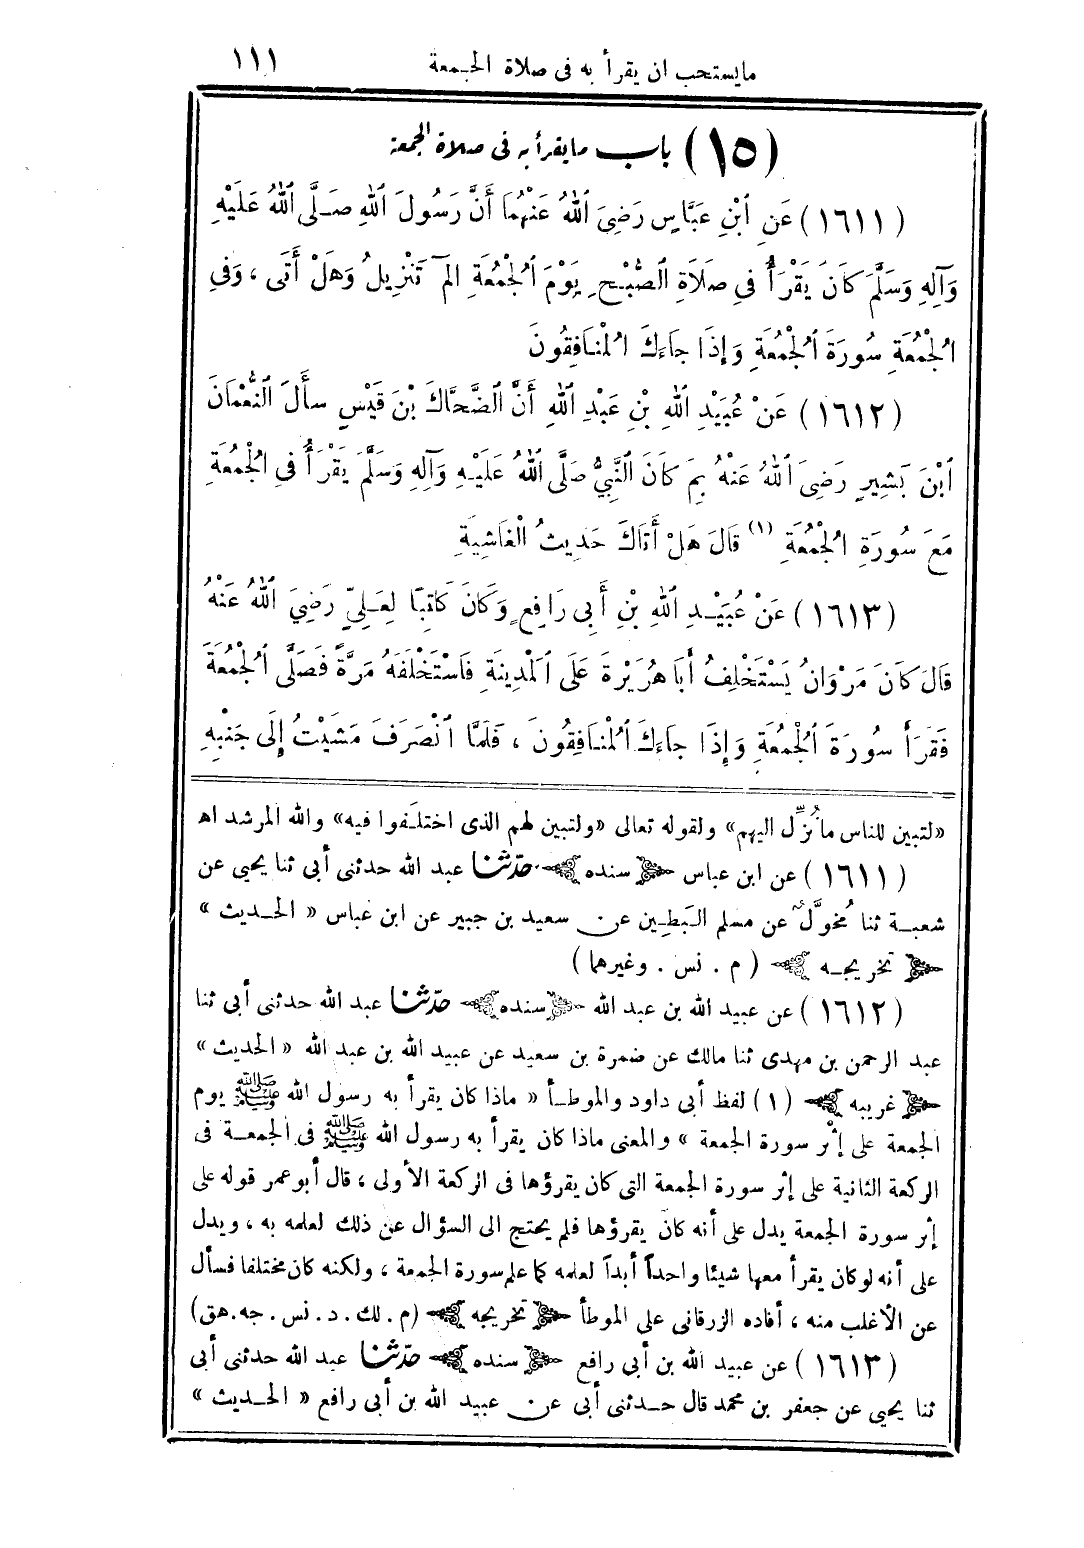 مايستحب ان يقرأ به فى صلاة الجمعة ١١١
(١٥) باب مايقرأ به فى صلاة الجمعة
(١٦١١) عَنِ ٱبْنِ عَبَّاسٍ رَضِىَ ٱللهُ عَنْهُمَا أَنَّ رَسُولَ ٱللهِ صَلَّى ٱللهُ عَلَيْهِ
وَآلِهِ وَسَلَّمَ كَانَ يَقْرَأُ فِى صَلَاةِ ٱلصُّبْحِ يَوْمَ ٱلْجُمُعَةِ الٓمٓ تَنْزِيلُ وَهَلْ أَتَى ، وَفِى
ٱلْجُمُعَةِ سُورَةَ ٱلْجُمُعَةِ وَإِذَا جَاءَكَ ٱلْمُنَافِقُونَ
(١٦١٢) عَنْ عُبَيْدِ ٱللهِ بْنِ عَبْدِ ٱللهِ أَنَّ ٱلضَّحَّاكَ بْنَ قَيْسٍ سأَلَ ٱلنُّعْمَانَ
ٱبْنَ بَشِيرٍ رَضِىَ ٱللهُ عَنْهُ بِمَ كَانَ ٱلنَّبِىُّ صَلَّى ٱللهُ عَلَيْهِ وَآلِهِ وَسَلَّمَ يَقْرَأُ فِى ٱلْجُمُعَةِ
مَعَ سُورَةِ ٱلْجُمُعَةِ (١) قَالَ هَلْ أَتَاكَ حَدِيثُ ٱلْغَاشِيَةِ
(١٦١٣) عَنْ عُبَيْدِ ٱللهِ بْنِ أَبِى رَافِعٍ وَكَانَ كَاتِبًا لِعَلِىٍّ رَضِىَ ٱللهُ عَنْهُ
قَالَ كَانَ مَرْوَانُ يَسْتَخْلِفُ أَبَا هُرَيْرَةَ عَلَى ٱلْمَدِينَةِ فَاسْتَخْلَفَهُ مَرَّةً فَصَلَّى ٱلْجُمُعَةَ
فَقَرَأَ سُورَةَ ٱلْجُمُعَةِ وَإِذَا جَاءَكَ ٱلْمُنَافِقُونَ ، فَلَمَّا ٱنْصَرَفَ مَشَيْتُ إِلَى جَنْبِهِ
«لتبين للناس مانُزِّل اليهم» ولقوله تعالى «ولتبين لهم الذى اختلفوا فيه» والله المرشد اهـ
(١٦١١) عن ابن عباس سنده حدّثنا عبد الله حدثنى أبى ثنا يحيى عن
شعبة ثنا مُخوَّل عن مسلم البَطِين عن سعيد بن جبير عن ابن عباس « الحديث »
تخريجه (م . نس . وغيرهما)
(١٦١٢) عن عبيد الله بن عبد الله سنده حدّثنا عبد الله حدثنى أبى ثنا
عبد الرحمن بن مهدى ثنا مالك عن ضمرة بن سعيد عن عبيد الله بن عبد الله « الحديث »
غريبه (١) لفظ أبى داود والموطأ « ماذا كان يقرأ به رسول الله ﷺ يوم
الجمعة على إثر سورة الجمعة » والمعنى ماذا كان يقرأ به رسول الله ﷺ فى الجمعة فى
الركعة الثانية على إثر سورة الجمعة التى كان يقرؤها فى الركعة الأولى ، قال أبو عمر قوله على
إثر سورة الجمعة يدل على أنه كان يقرؤها فلم يحتج الى السؤال عن ذلك لعلمه به ، ويدل
على أنه لوكان يقرأ معها شيئا واحداً أبداً لعلمه كما علم سورة الجمعة ، ولكنه كان مختلفا فسأل
عن الأغلب منه ، أفاده الزرقانى على الموطأ تخريجه (م . لك . د . نس . جه . هق)
(١٦١٣) عن عبيد الله بن أبى رافع سنده حدّثنا عبد الله حدثنى أبى
ثنا يحيى عن جعفر بن محمد قال حدثنى أبى عن عبيد الله بن أبى رافع « الحديث »